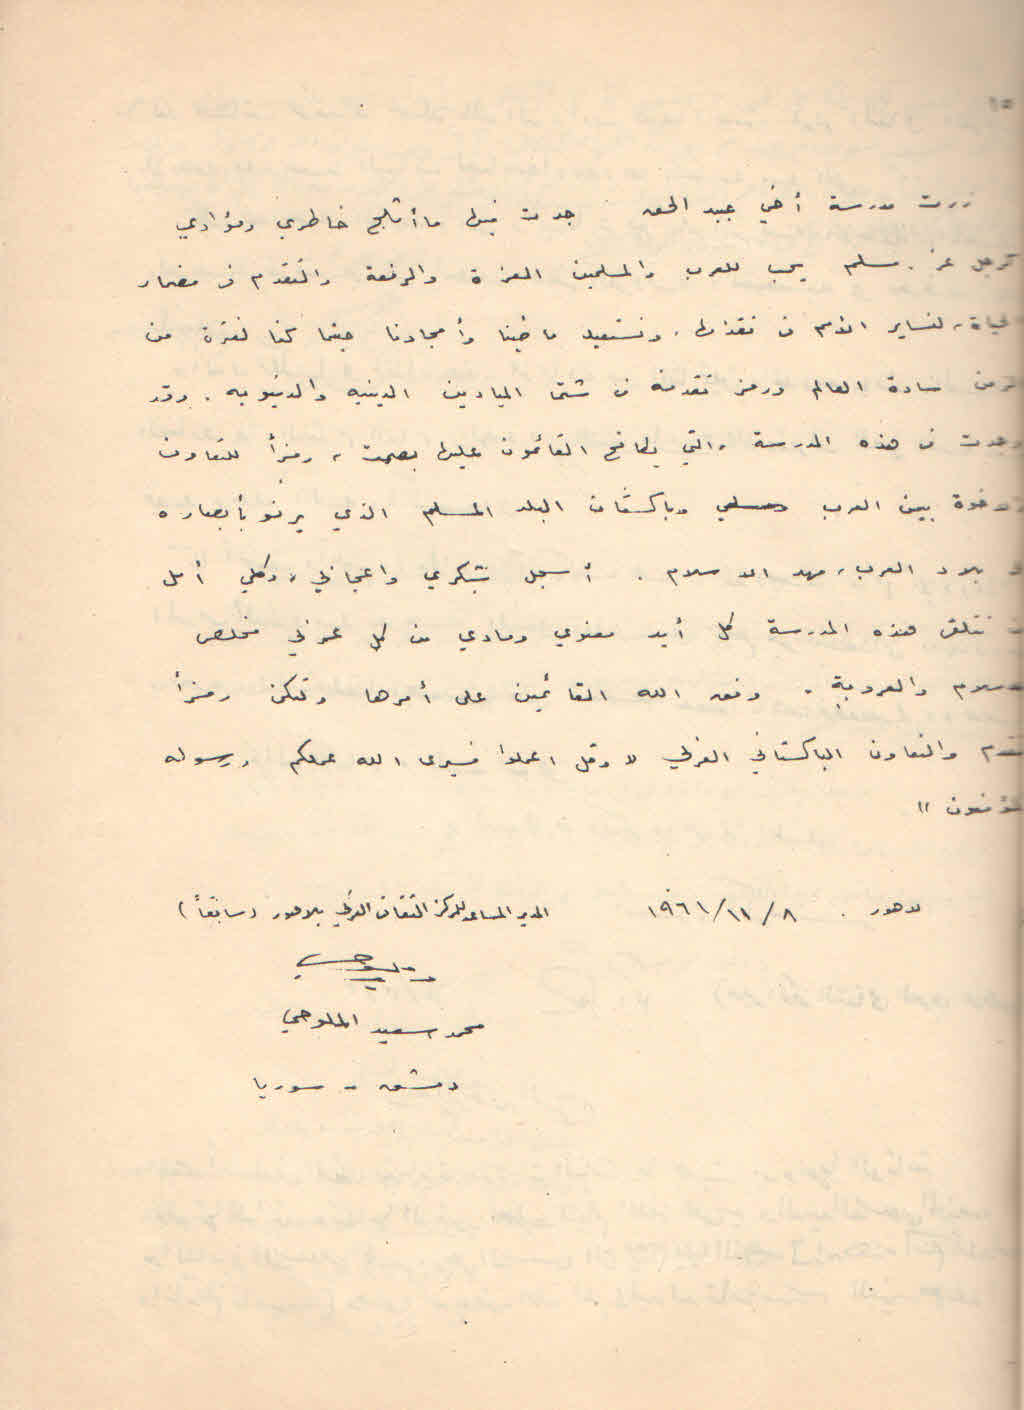 ٢٥
زرت مدرسة أخي عبيد الحق جدت فيها ما أثلج خاطري وفؤادي
كرجل عر. مسلم يحب للعرب والمسلمين العزة والرفعة والتقدم في مضمار
لحياة، لنساير الأمم في تقدمها، ونستعيد ماضينا وأمجادنا حينما كنا لفترة من
لزمن سادة العالم ورمز تقدمه في شتى الميادين الدينيه والدنيويه. وقد
وجدت في هذه المدرسة، التي يكافح القائمون عليها بصمت، رمزاً للتعاون
والاخوة بين العرب وباكستان البلد المسلم الذي يرنو بأبصاره
بلاد العرب، مهد الاسلام. أسجل شكري واعجابي، وكلي أمل
تتلقى هذه المدرسة كل أيد معنوي ومادي من كل عربي مخلص
سلام والعروبة. وفق الله القائمين على أمرها ولتكن رمزاً
تقدم والتعاون الباكستاني العربي " وقل اعملوا فسيرى الله عملكم ورسوله
لمؤمنون "
لاهور. ٨/١١/١٩٦١ المدير المساعد للمركز الثقافي العربي بلاهور (سابقاً)
محمد سعيد الملوحي
دمشق - سوريا